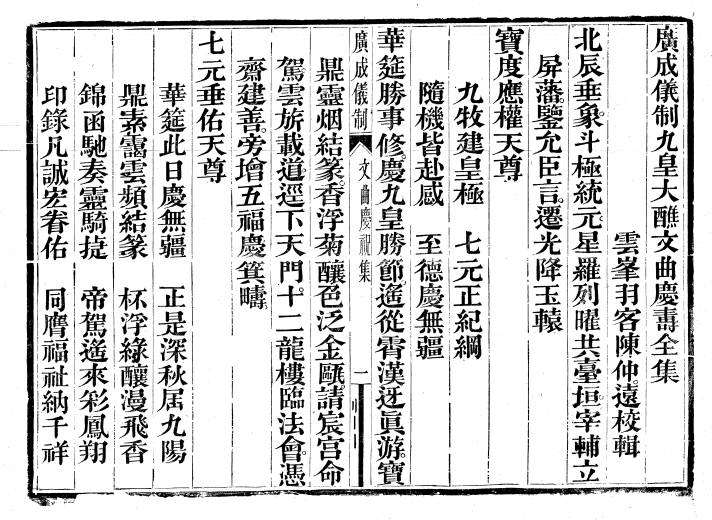 廣成儀制九皇大醮文曲慶壽全集
雲峯羽客陳仲遠校輯
北辰垂象。斗極統元。星羅列曜共臺垣宰輔立
屏藩。鑒允臣言。遷光降玉轅
寶度應權天尊
九牧建皇極　七元正紀綱
隨機皆赴感　至德慶無疆
華筵勝事修。慶九皇勝節遙從霄漢迓眞游。寶
廣成儀制　文曲慶祝集　一
鼎靈烟結篆。香浮菊釀色泛金甌。請宸宫命
駕雲旂載道。逕下天門。十二龍樓臨法會。憑
齋建善。旁增五福慶箕疇。
七元垂佑天尊
華筵此日慶無疆　正是深秋届九陽
鼎素靄雲頻結篆　杯浮綠釀漫飛香
錦函馳奏靈騎捷　帝駕遙來彩鳳翔
印籙凡誠宏眷佑　同膺福祉納千祥